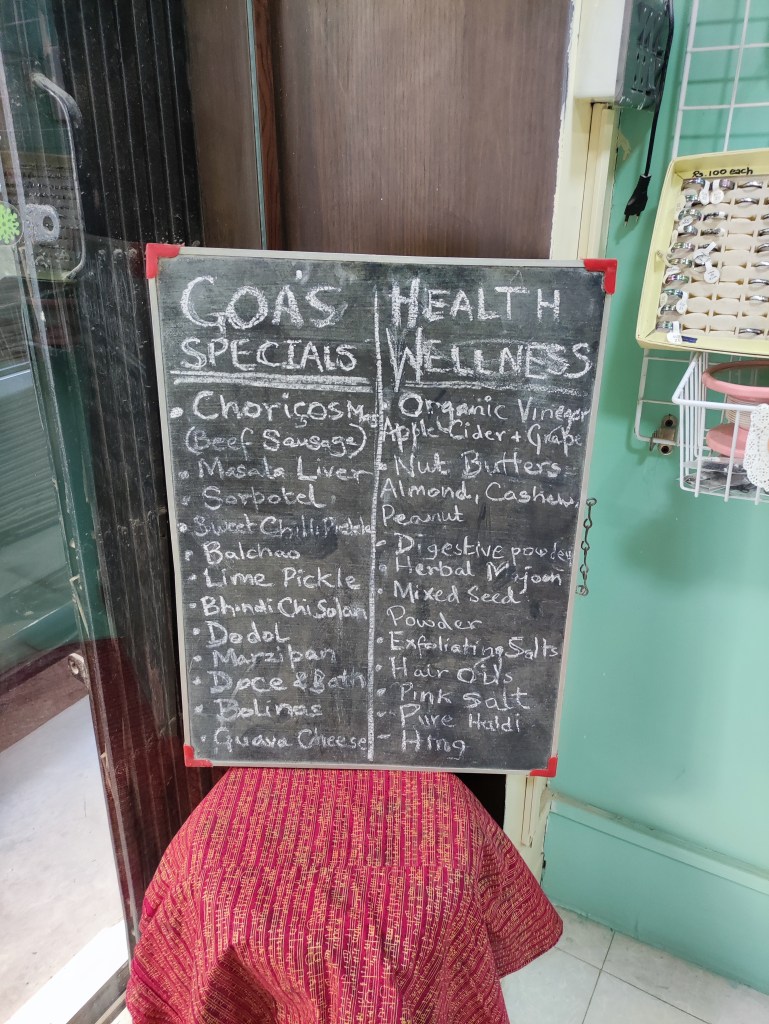 Rs.100 each
GOA'S
SPECIALS
• Choriços
(Beef Sausage)
• Masala Liver
• Sorpotel
• Sweet Chilli Pickle
• Balchao
• Lime Pickle
• Bhindi Chi Solan
• Dodol
• Marzipan
• Doce & Bath
• Bolinas
• Guava Cheese
HEALTH
WELLNESS
• Organic Vineger
Apple Cider + Grape
• Nut Butters-
Almond, Cashew,
Peanut
- Digestive powder
• Herbal
• Mixed Seed
Powder
• Exfoliating Salts
• Hair Oils
• Pink Salt
- Pure Haldi
- Hing